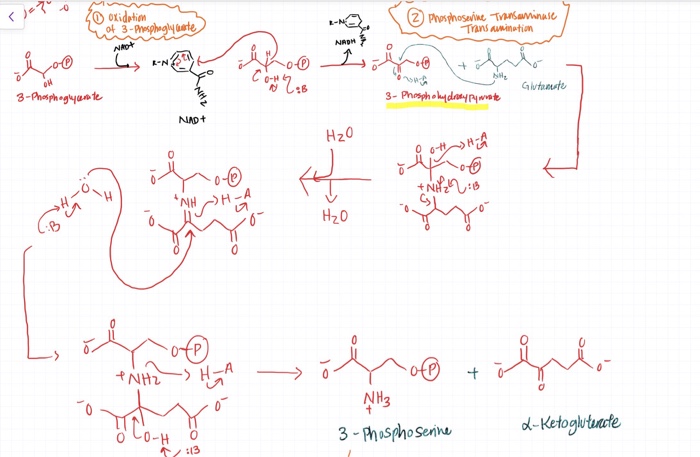 ① Oxidation
of 3-Phosphoglycerate
② Phosphoserine Transaminase
Transamination
NAD+
R-N
NH2
NAD+
NADH
3-Phosphoglycerate
3-Phosphohydroxypyruvate
+
Glutamate
NH2
H2O
H2O
O-H
H-A
+NH2
:B
+NH
H-A
:B
H
O
H
O-P
+NH2
H-A
O-H
:B
O-P
NH3
+
+
3-Phosphoserine
α-Ketoglutarate